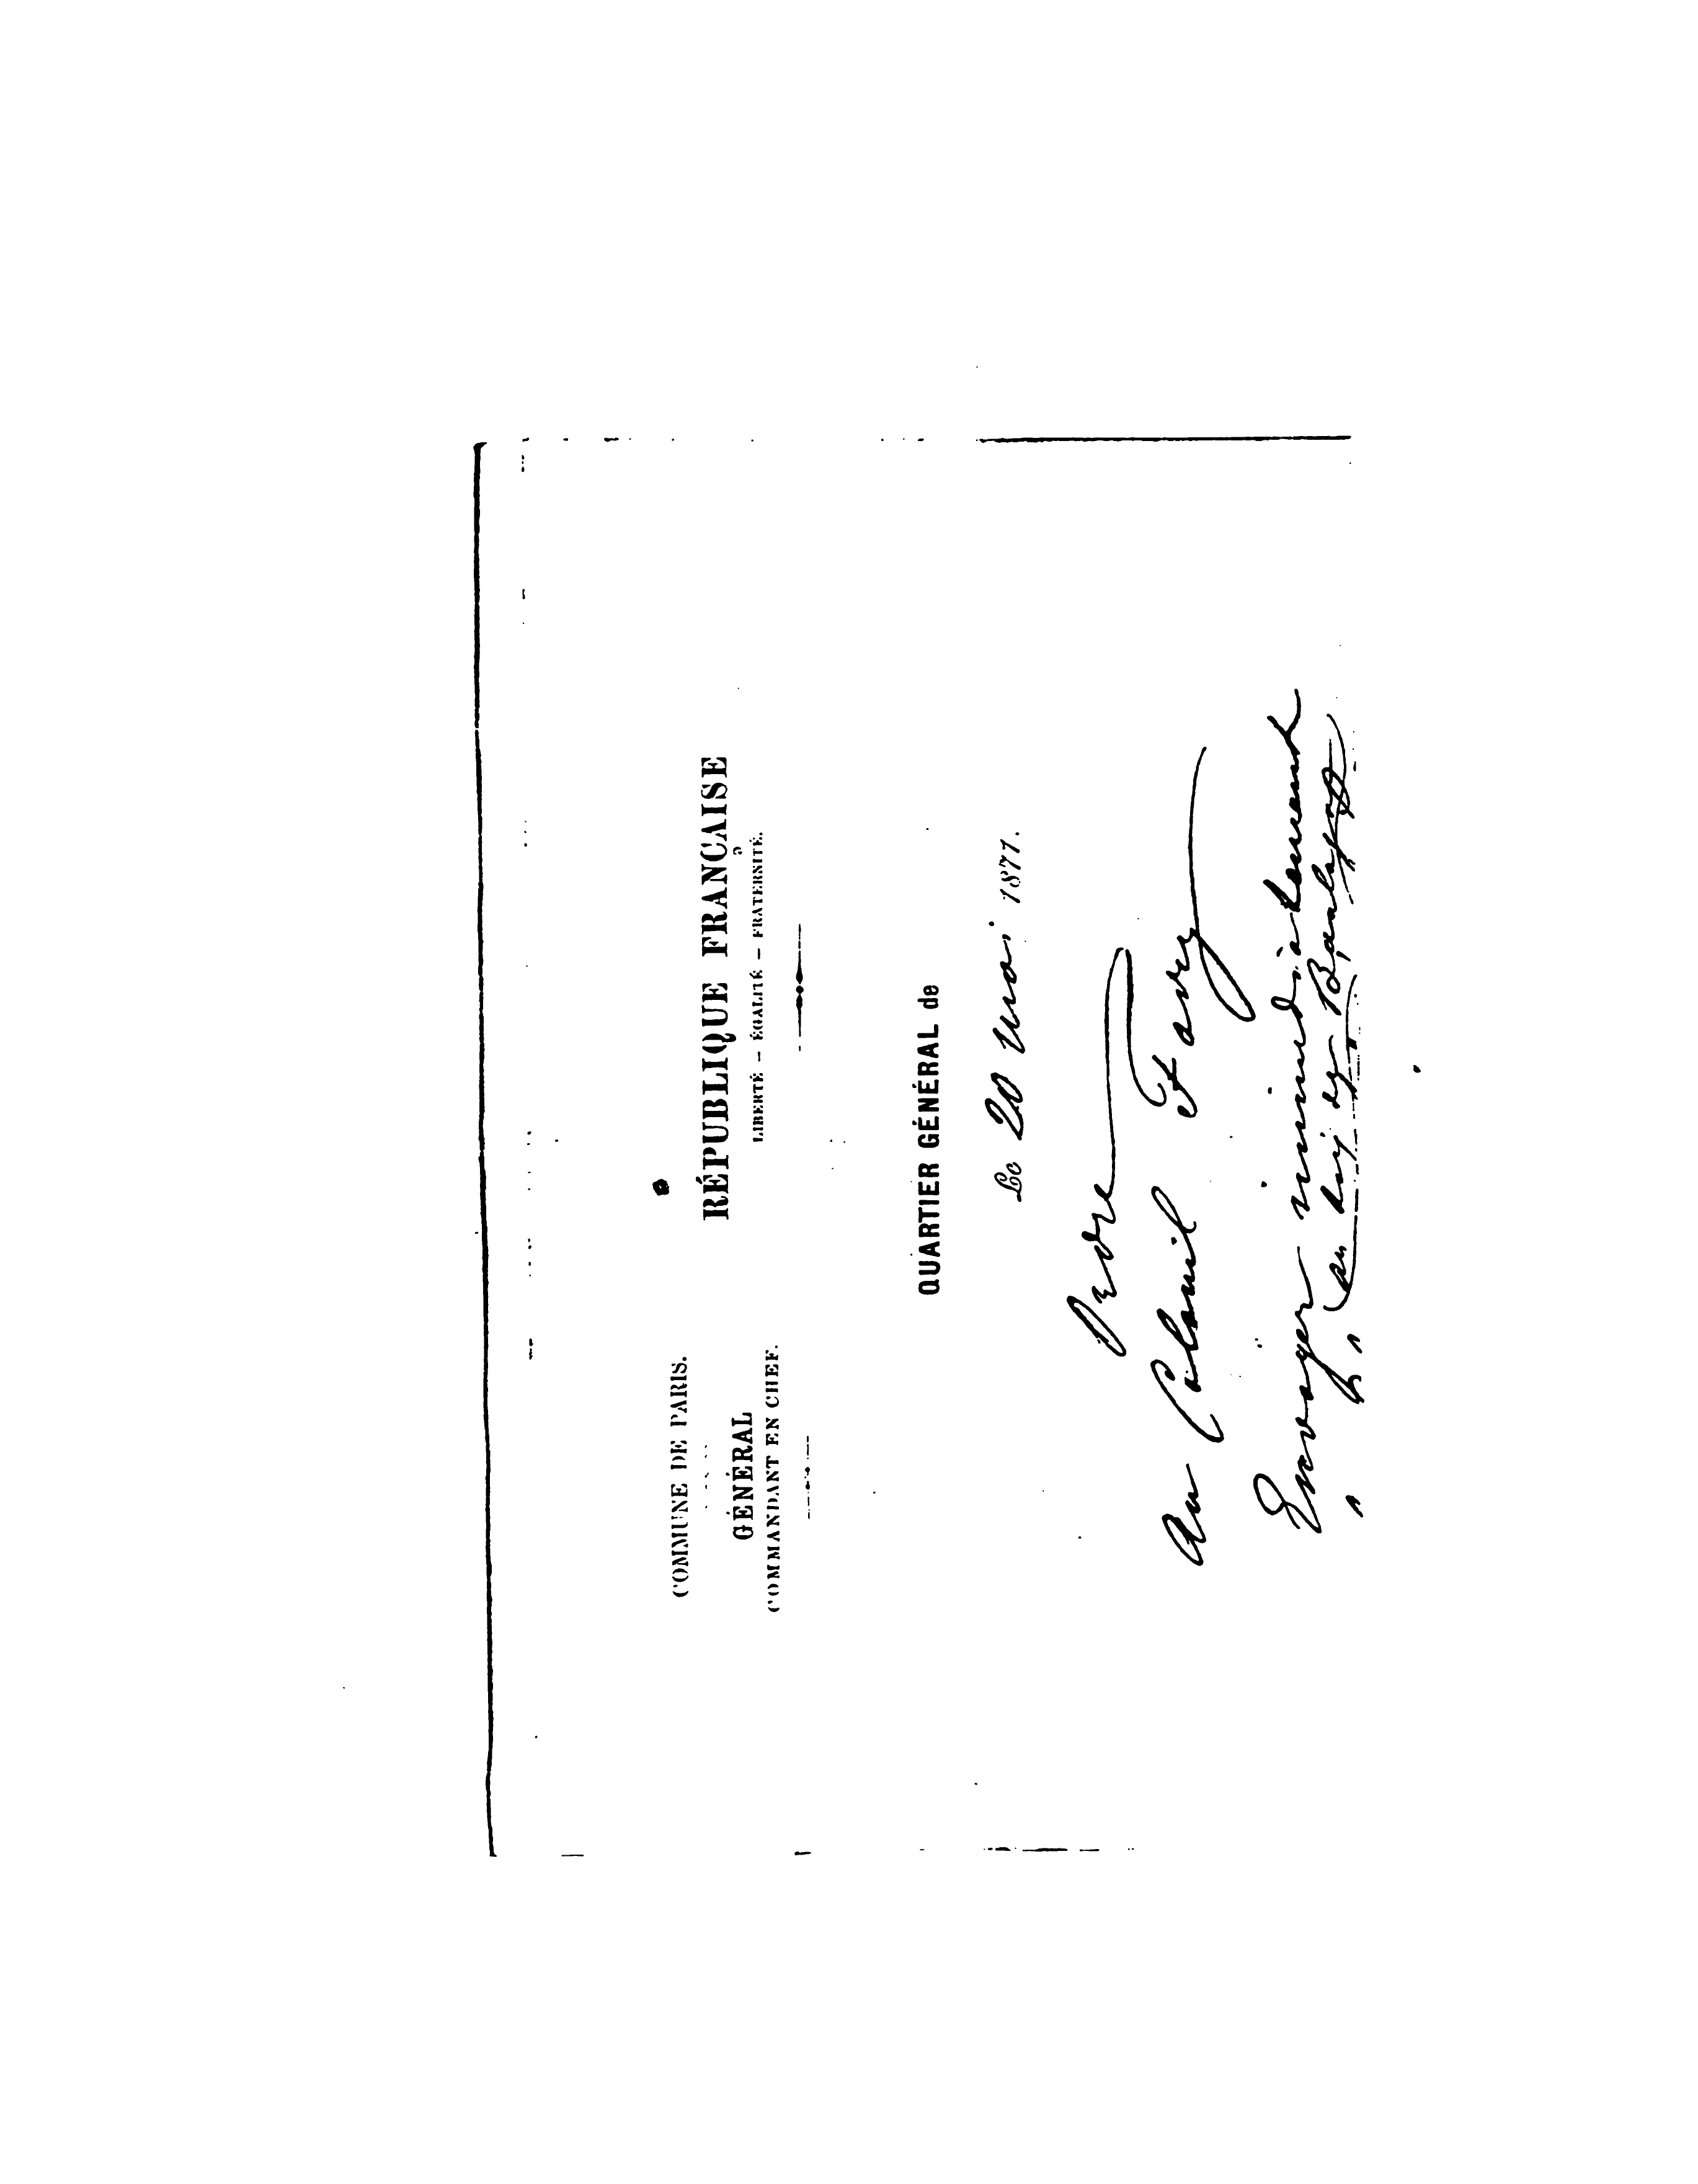 COMMUNE DE PARIS.
GÉNÉRAL
COMMANDANT EN CHEF.
RÉPUBLIQUE FRANÇAISE
LIBERTÉ – ÉGALITÉ – FRATERNITÉ.
QUARTIER GÉNÉRAL de
Le 20 mai 1871.
Ordre
Au Colonel Favy
Envoyer immédiatement
au